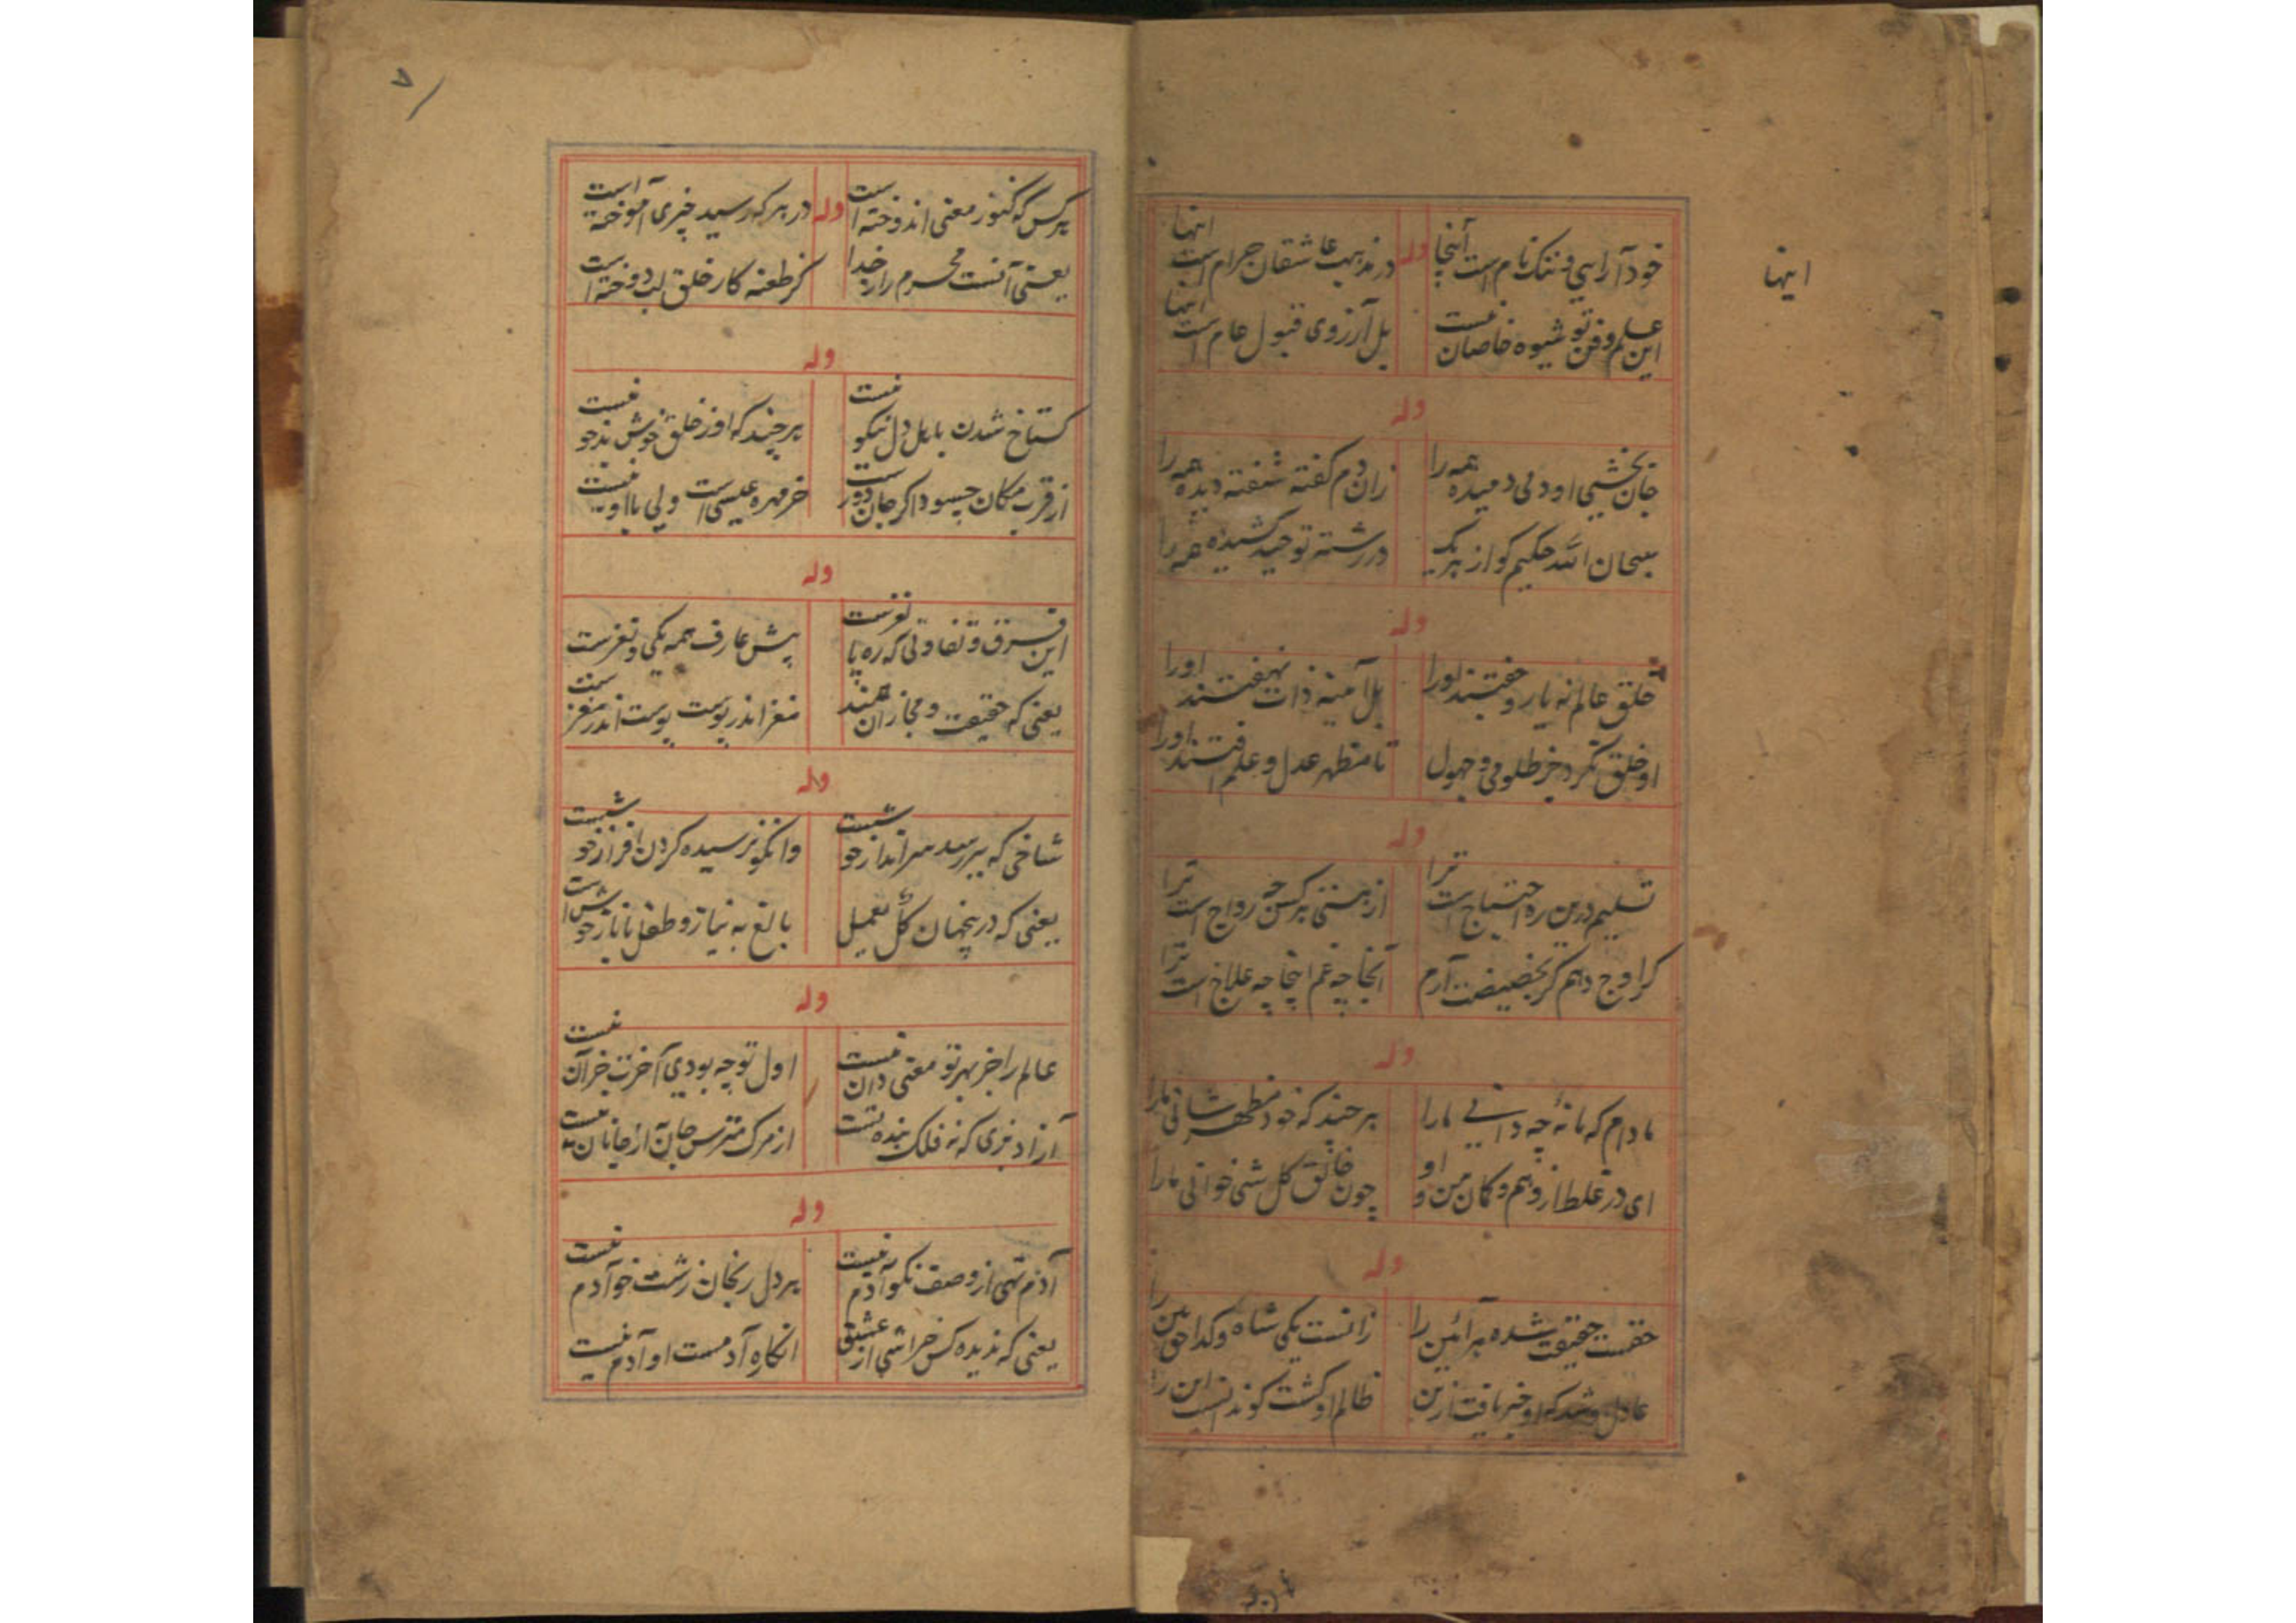 خود آرایی و ننگ نام است اینجا
وله
در مذهب عاشقان حرام است اینها
اینها
این علم و فن تو شیوه خاصان نیست
بل آرزوی قبول عام است اینها
وله
جان بخشی او دمی دمیده همه را
زان دم گفته شنفته دیده همه را
سبحان الله حکیم کو از هر یک
در رشته توحید کشیده همه را
وله
خلق عالم نه یار و جفتند اورا
بل آینه ذات نهفتند اورا
او خلق نکرد جز ظلومی و جهول
تا مظهر عدل و علم افتند اورا
وله
تسلیم درین ره احتیاج است ترا
از هستی هر کس چه رواج است ترا
کر اوج دهم کر بحضیضت آرم
آنجا چه غم اینجا چه علاج است ترا
وله
مادام که ما نه چه دانی مارا
هر چند که خود مظهر شانی مارا
ای در غلط از وهم و کمان من و او
چون خالق کل شی خوانی مارا
وله
حقست حقیقت شده هر آئین را
زانست یکی شاه و کدا حق بین را
عادل شد که او خبر یافت ازین
ظالم او کشت کو ندانست این را
۷
هر کس که کنوز معنی اندوخته است
وله
در هر که رسید چیزی آموخته است
یعنی آنست محرم راز خدا
کز طعنه کار خلق لب دوخته است
وله
کستاخ شدن باهل دل نیکو نیست
هر چند که او ز خلق خوش بدخو نیست
از قرب مکان چسود اکر جان دور ست
خر مهره عیسی است ولی با او نیست
وله
این فرق و تفاوتی که ره پا نغزست
پیش عارف همه یکی و نغزست
یعنی که حقیقت و مجاز آن همند
مغز اندر پوست پوست اندر مغز ست
وله
شاخی که ببر رسد سرانداز خوشست
وانکو نرسیده کردن افراز خوشست
یعنی که درینجهان کل یعمل
بالغ به نیاز و طفل با ناز خوش است
وله
عالم را جز بهر تو معنی دان نیست
اول تو چه بودی آخرت جز آن نیست
آزاد بزی که نه فلک بنده تست
از مرک مترس جان از جانان نیست
وله
آدم تهی از وصف نکو آدم نیست
پر دل رنجان زشت خو آدم نیست
یعنی که ندیده کس خراشی از عشق
انکاره آدمست او آدم نیست